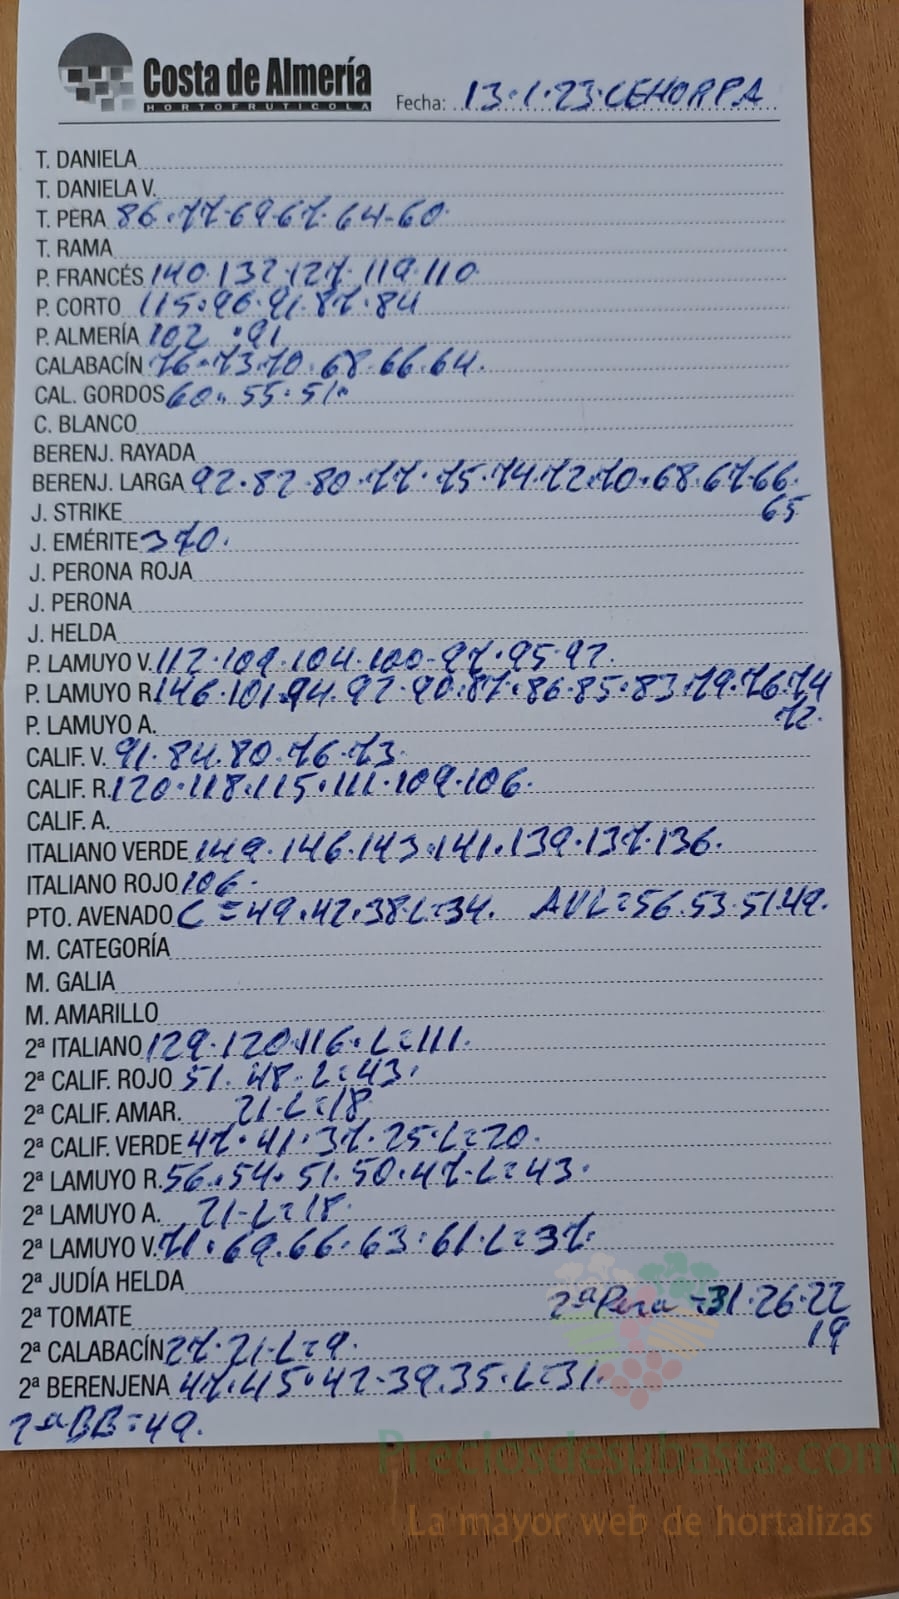 Costa de Almería
HORTOFRUTICOLA
Fecha: 13·1·23·CEHORPA
T. DANIELA
T. DANIELA V.
T. PERA 86·77·69·67·64-60·
T. RAMA
P. FRANCÉS 140·132·127·119·110
P. CORTO 115·96·91·87·84
P. ALMERÍA 102·91
CALABACÍN 76·73·70·68·66·64·
CAL. GORDOS 60·55·51·
C. BLANCO
BERENJ. RAYADA
BERENJ. LARGA 92·82·80·77·75·74·72·70·68·67·66·
65
J. STRIKE
J. EMÉRITE 370·
J. PERONA ROJA
J. PERONA
J. HELDA
P. LAMUYO V. 112·109·104·100-97·95·92·
P. LAMUYO R. 146·101·94·92·90·87·86·85·83·79·76·74
72·
P. LAMUYO A.
CALIF. V. 91·84·80·76·73·
CALIF. R. 120·118·115·111·109·106·
CALIF. A.
ITALIANO VERDE 149·146·143·141·139·137·136·
ITALIANO ROJO 106·
PTO. AVENADO C=49·42·38·L=34. AVL=56·53·51·49·
M. CATEGORÍA
M. GALIA
M. AMARILLO
2ª ITALIANO 129·120·116·L=111·
2ª CALIF. ROJO 51·48·L=43·
2ª CALIF. AMAR. 21-L=18
2ª CALIF. VERDE 47·41·37·25·L=20·
2ª LAMUYO R. 56·54·51·50·47-L=43·
2ª LAMUYO A. 21-L=18·
2ª LAMUYO V. 71·69·66·63·61·L=37·
2ª JUDÍA HELDA
2ª TOMATE 2ª Pera=31·26·22
19
2ª CALABACÍN 27·21-L=9·
2ª BERENJENA 47·45·42-39·35·L=31·
2ªBB=49.
Preciosdesubasta.com
La mayor web de hortalizas